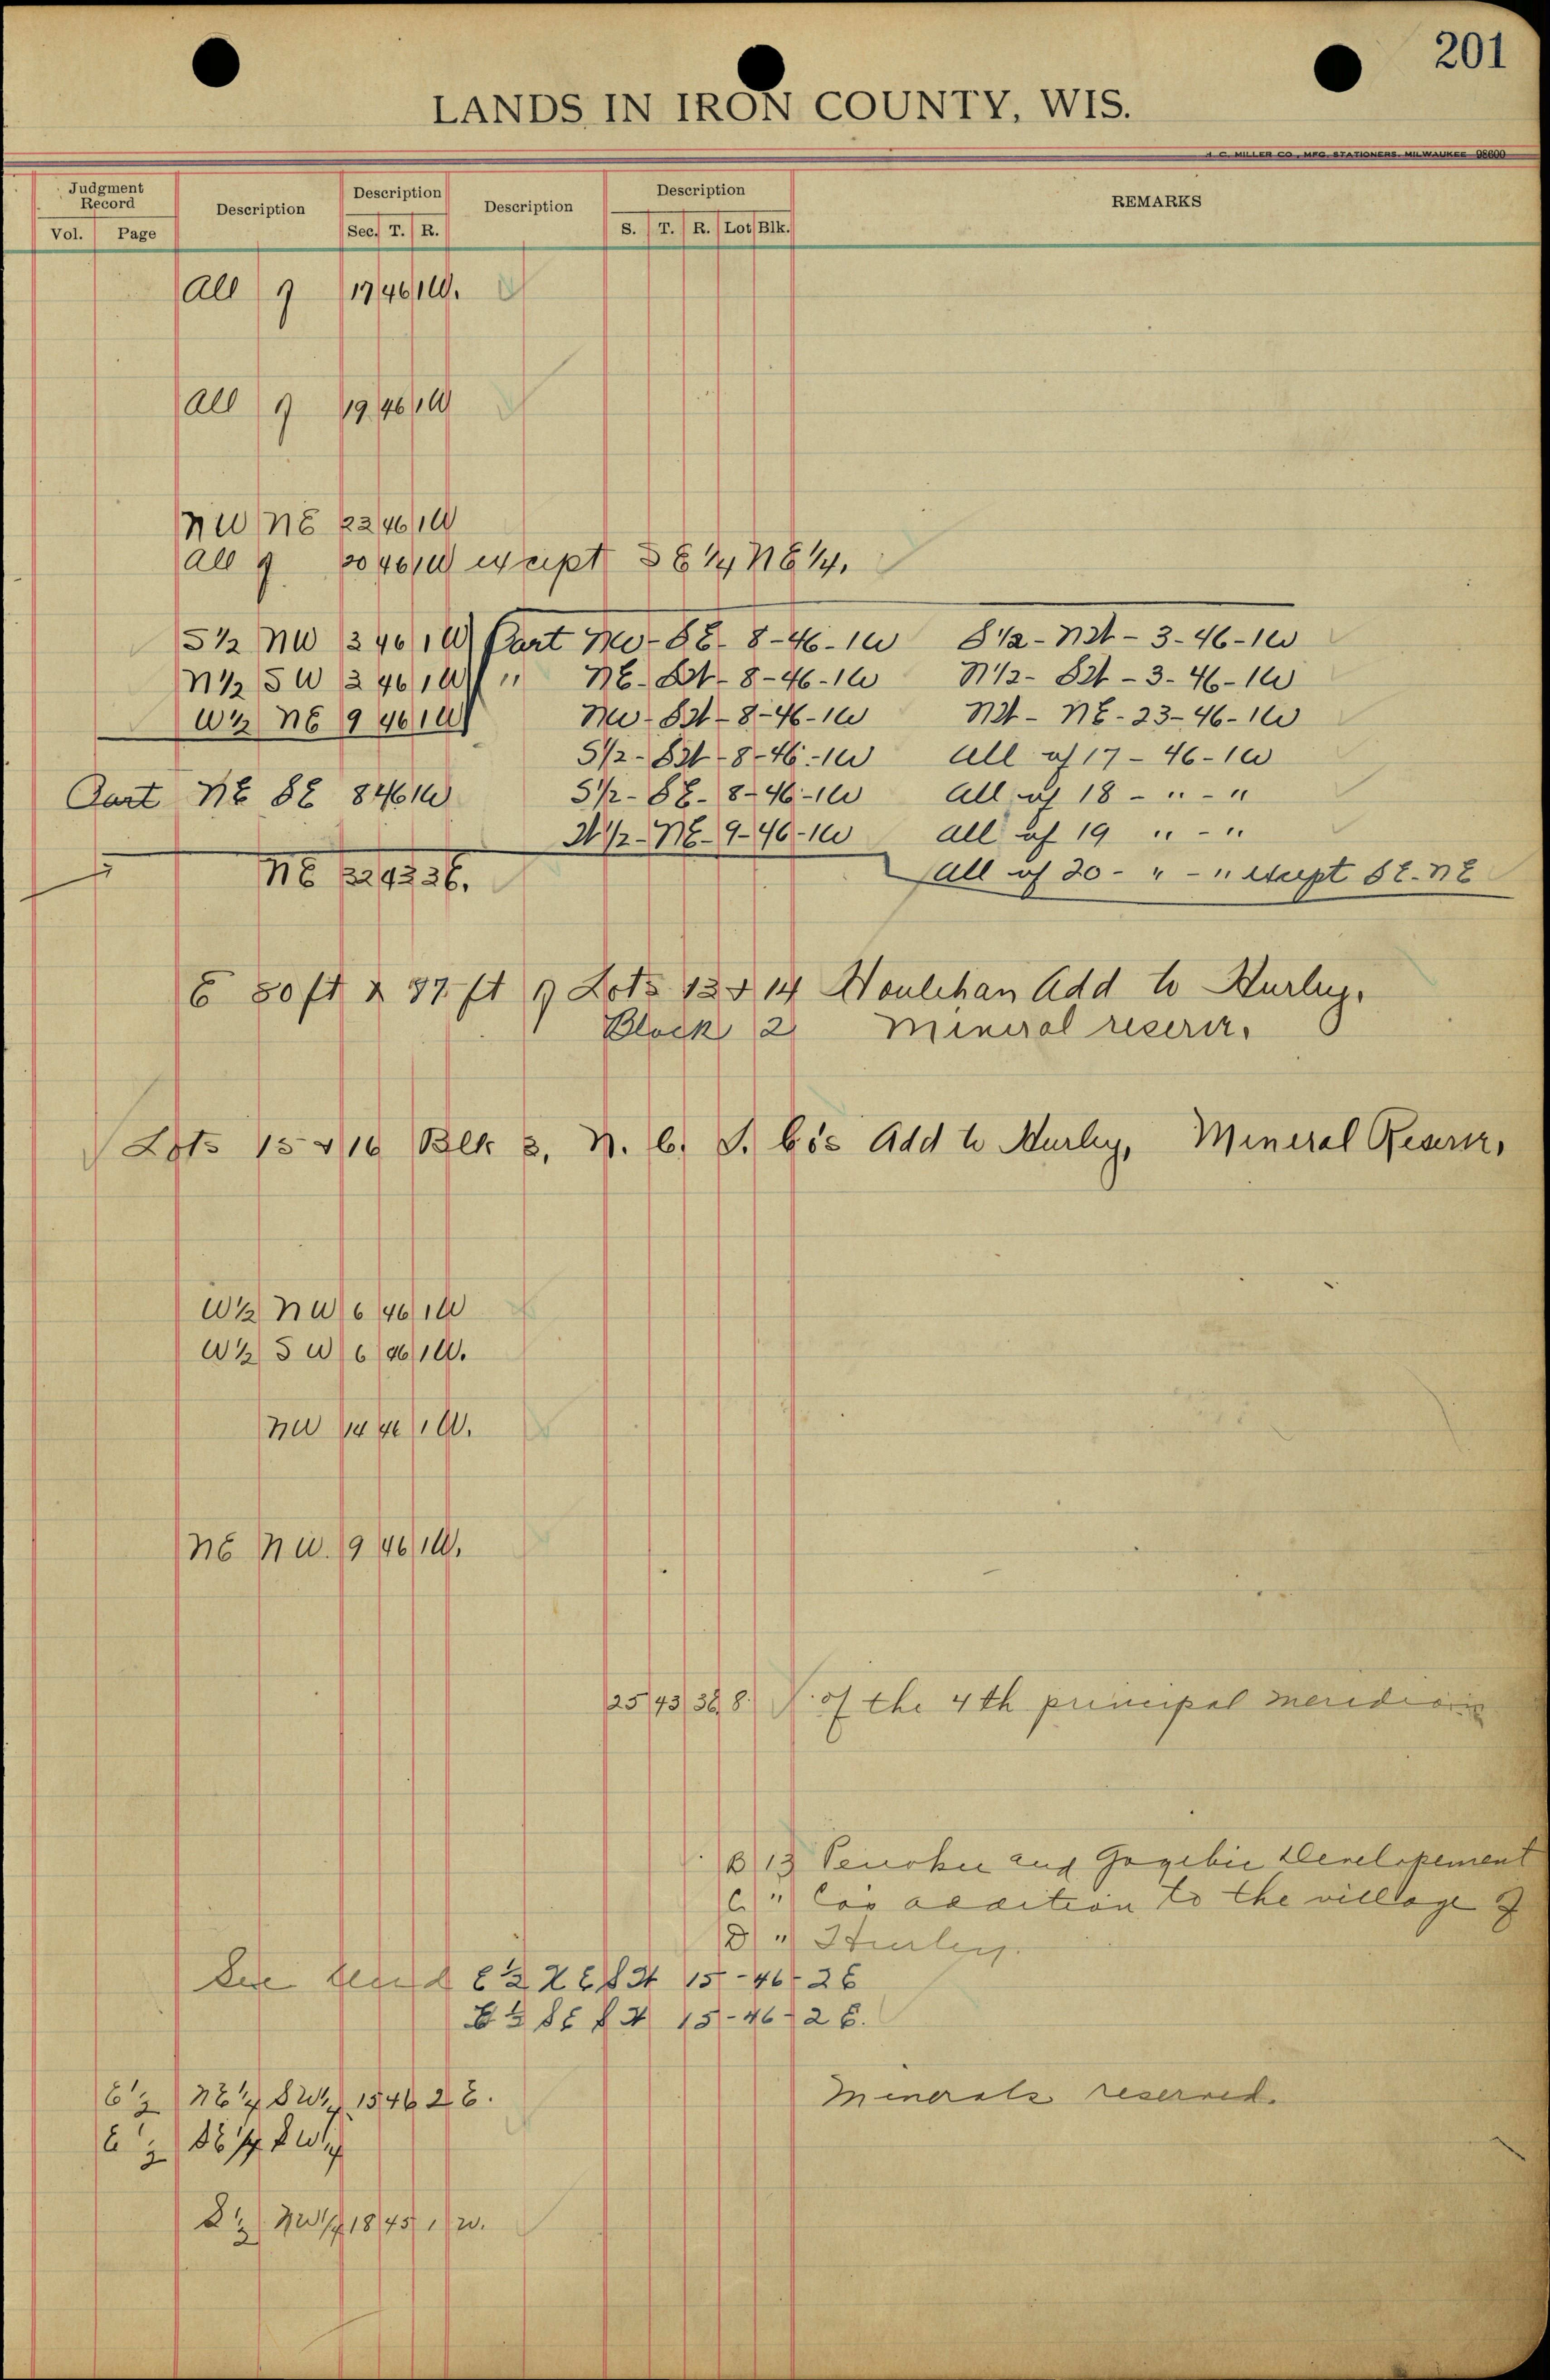 201
LANDS IN IRON COUNTY, WIS.
H. C. MILLER CO., MFG. STATIONERS, MILWAUKEE 98600
Judgment Record Description Description Description Description REMARKS
Vol. Page Sec. T. R. S. T. R. Lot Blk.
All of 17 46 1W.
All of 19 46 1W
NW NE 23 46 1W
All of 20 46 1W except SE 1/4 NE 1/4.
S 1/2 NW 3 46 1W Part NW-SE- 8-46-1W S 1/2-NW-3-46-1W
N 1/2 SW 3 46 1W " NE-SW-8-46-1W N 1/2-SW-3-46-1W
W 1/2 NE 9 46 1W NW-SW-8-46-1W NW-NE-23-46-1W
S 1/2-SW-8-46-1W All of 17-46-1W
Part NE SE 8 46 1W S 1/2-SE-8-46-1W All of 18 - " - "
W 1/2-NE-9-46-1W All of 19 " - "
NE 32 43 3E. All of 20 - " - " except SE-NE
E 80 ft x 37 ft of Lots 13 & 14 Houlehan Add to Hurley.
Block 2 Mineral reserve.
Lots 15 & 16 Blk 3, N. C. I. Co's Add to Hurley, Mineral Reserve,
W 1/2 NW 6 46 1W
W 1/2 SW 6 46 1W.
NW 14 46 1W.
NE NW. 9 46 1W.
25 43 3E 8 of the 4th principal meridian
B 13 Penokee and Gogebic Developement
C " Co's addition to the village of
D " Hurley.
See E 1/2 NE SW 15-46-2E
E 1/2 SE SW 15-46-2E.
E 1/2 NE 1/4 SW 1/4 15 46 2 E. Minerals reserved.
E 1/2 SE 1/4 SW 1/4
S 1/2 NW 1/4 18 45 1 W.